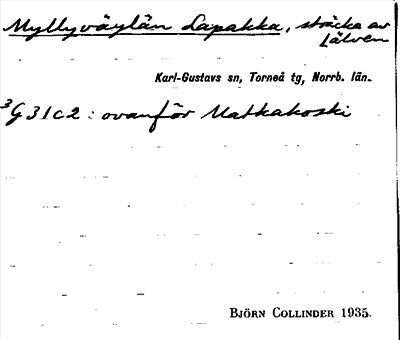 Myllyväylän Lapakka, sträcka av
Lälven
Karl-Gustavs sn, Torneå tg, Norrb. län.
3G31c2: ovanför Matkakoski
BJÖRN COLLINDER 1935.